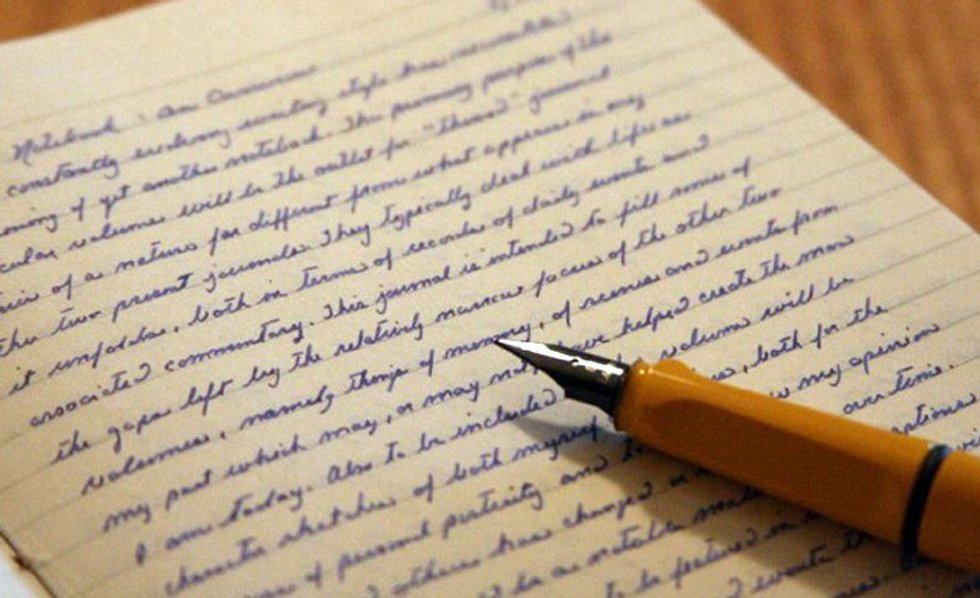 Notebook: An Overview
constantly evolving writing style has necessitated
ning of yet another notebook. The primary purpose of this
cular volume will be the outlet for "themed" journal
ries of a nature far different from what appears in my
the two present journals. They typically deal with life as
it unfolds, both in terms of records of daily events and
associated commentary. This journal is intended to fill some of
the gaps left by the relatively narrow focus of the other two
volumes, namely things of memory, of scenes and events from
my past which may, or may not have helped create the man
I am today. Also to be included volume will be
character sketches of both myself , both for the
of personal posterity and my opinion
others have changed over time.
to a notable
to be featured in
events